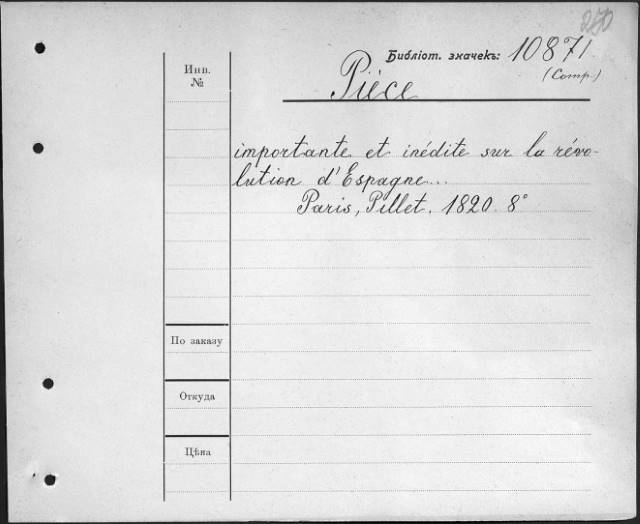 250
Библіот. значекъ: 10871
(Comp.)
Инв.
№
Pièce
importante et inédite sur la révo-
lution d'Espagne...
Paris, Pillet. 1820. 8°
По заказу
Откуда
Цѣна